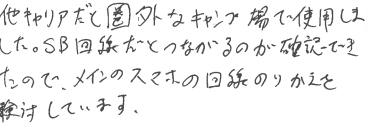 他キャリアだと圏外なキャンプ場で使用しま
した。SB回線だとつながるのが確認でき
たので、メインのスマホの回線のりかえを
検討しています。